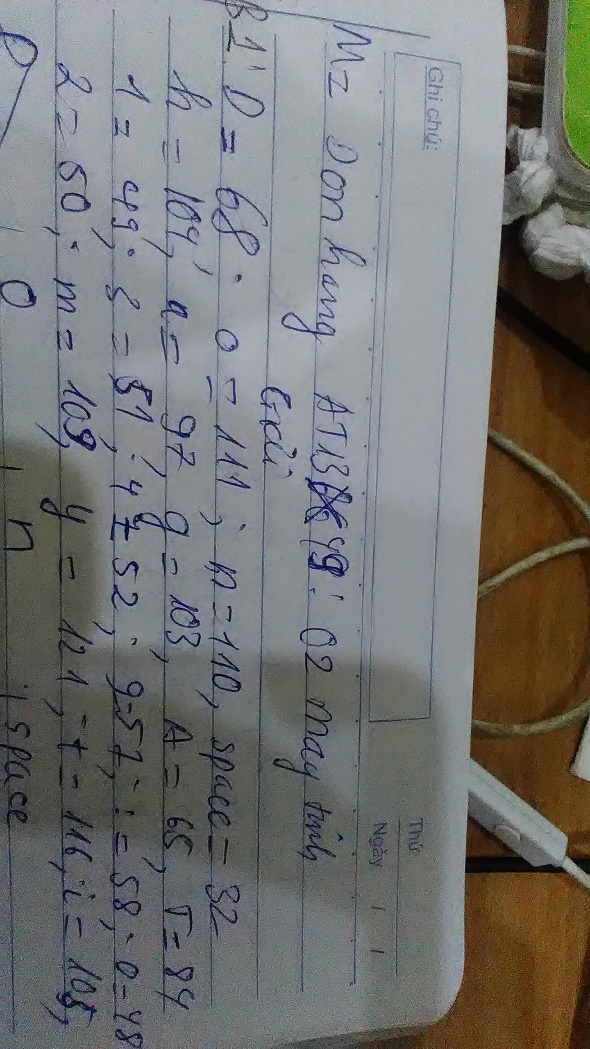 Ghi chú:
Thứ
Ngày / /
M = Don hang AT1349: 02 may tinh
Giải
B1: D = 68; o = 111; n = 110, space = 32
h = 104, a = 97 g = 103, A = 65, T = 84
1 = 49; 3 = 51; 4 = 52; 9=57; : = 58; 0=48
2 = 50; m = 109, y = 121, t = 116, i = 105,
D o n space